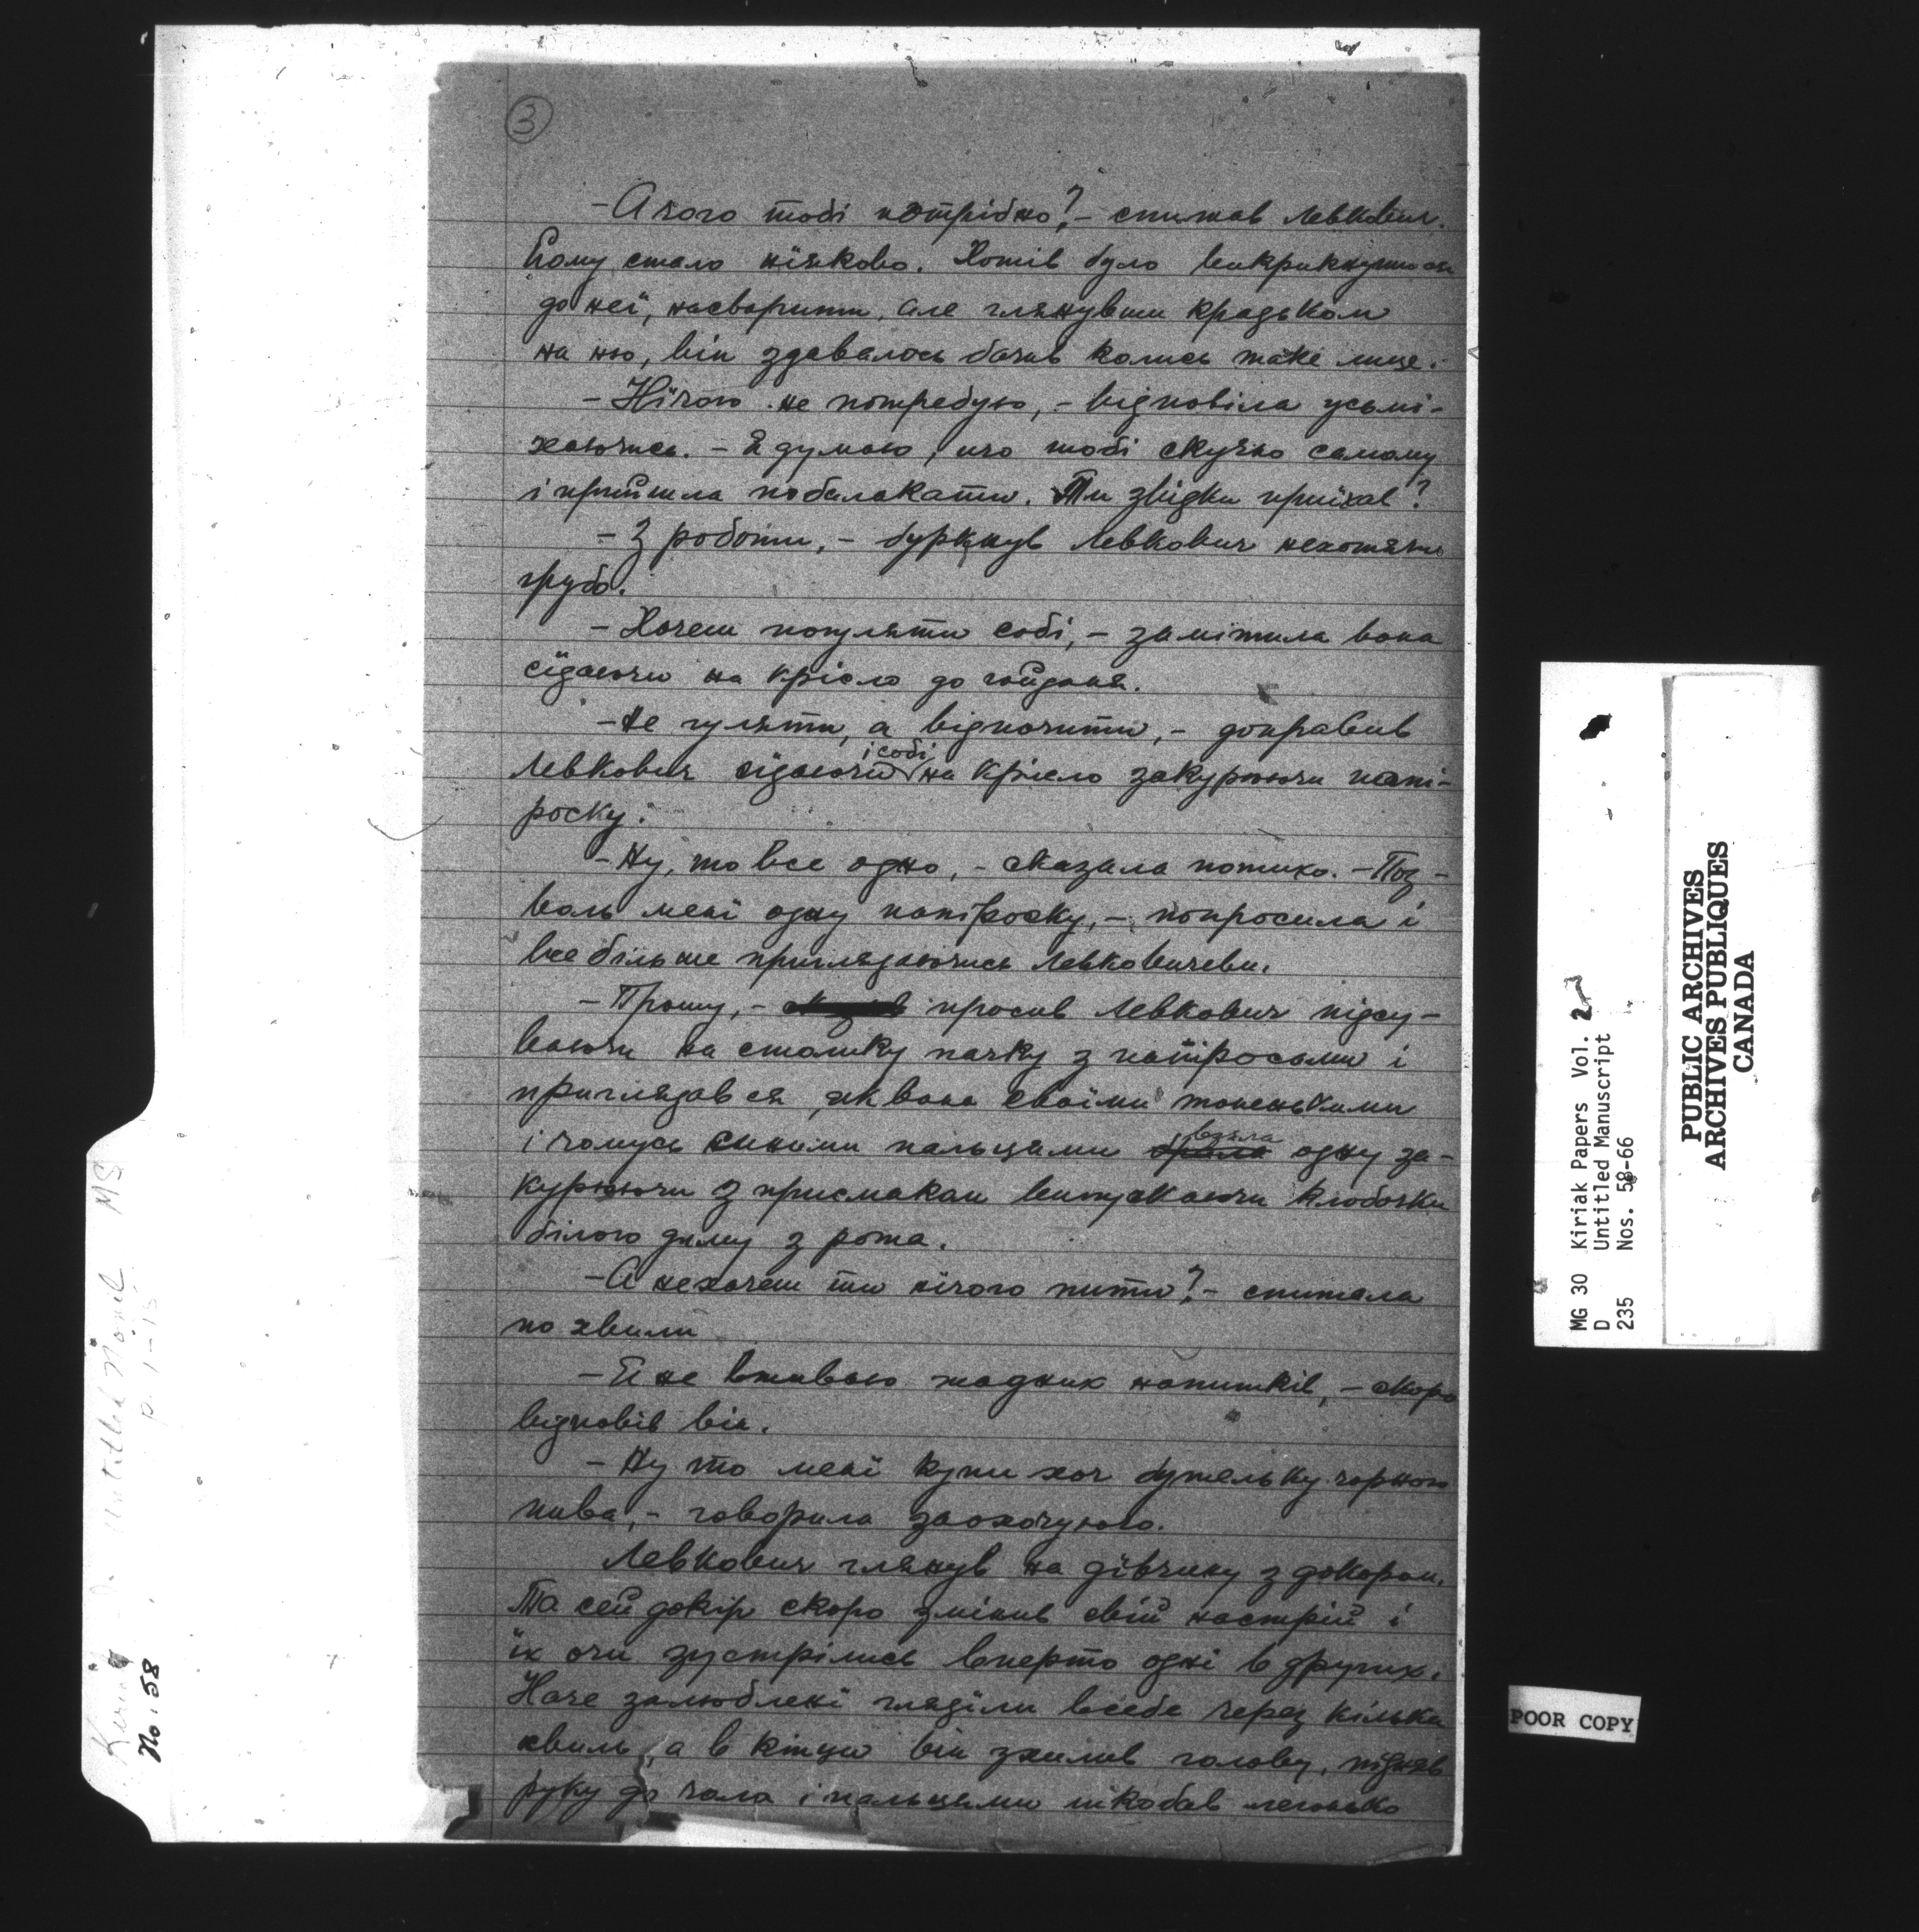 3
- А чого тобі потрібно? - спитав Левкович.
Йому стало ніяково. Хотів було викрикнутися
до неї, насварити, але глянувши крадьком
на ню, він здавалось бачив колись таке лице.
- Нїчого не потребую, - відповіла усьмі-
хаючись. - Я думаю, що тобі скучно самому
і прийшла побалакати. Ти звідки приїхав?
- З роботи, - буркнув Левкович нехотячи
грубо.
- Хочеш погуляти собі, - замітила вона
сїдаючи на крісло до гойданя.
- Не гуляти, а відпочити, - доправив
Левкович сїдаючи і собі на крісло закурюючи папі-
роску.
- Ну, то все одно, - сказала потихо. - Поз-
воль мені одну папіроску, - попросила і
все більше приглядаючись Левковичеви.
- Прошу, - просив Левкович підсу-
ваючи на столику пачку з папіросами і
приглядався, як вона своїми тоненькими
і чомусь синими пальцями брала взяла одну за-
курюючи з присмаком випускаючи клубочки
білого диму з рота.
- А нехочеш ти нічого пити? - спитала
по хвили
- Я не вживаю жадних напитків, - скоро
відповів він.
- Ну то мені купи хоч бутельку чорного
пива, - говорила заохочуючо.
Левкович глянув на дївчину з докором.
Та сей докір скоро змінив свій настрій і
їх очи зустрілись вперто одні в других.
Наче залюблені гляділи в себе через кілька
хвиль, а в кінци він схилив голову, підняв
руку до чола і пальцями шкобав легонько
Untitled Novel MS
p. 1-15
No. 58
MG 30 Kiriak Papers Vol. 2
D Untitled Manuscript
235 Nos. 58-66
PUBLIC ARCHIVES
ARCHIVES PUBLIQUES
CANADA
POOR COPY